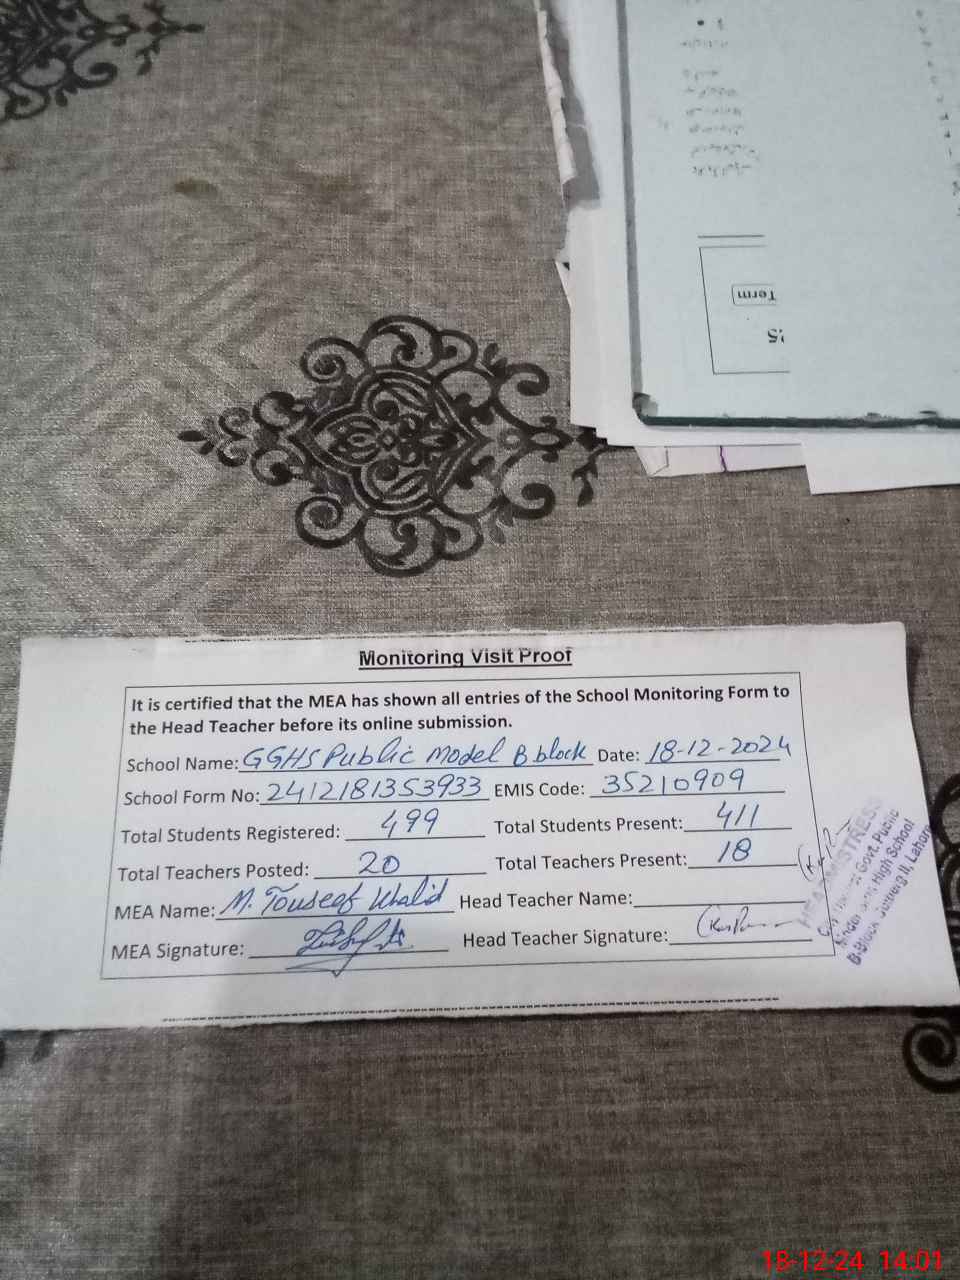 Term
Monitoring Visit Proof
It is certified that the MEA has shown all entries of the School Monitoring Form to
the Head Teacher before its online submission.
School Name: GGHS Public Model B block Date: 18-12-2024
School Form No: 2412181353933 EMIS Code: 35210909
Total Students Registered: 499 Total Students Present: 411
Total Teachers Posted: 20 Total Teachers Present: 18
MEA Name: M. Touseef Khalid Head Teacher Name:
MEA Signature: Head Teacher Signature:
HEADMISTRESS
Govt. Public
Model Girls High School
B-Block Gulberg II, Lahore
18-12-24 14:01